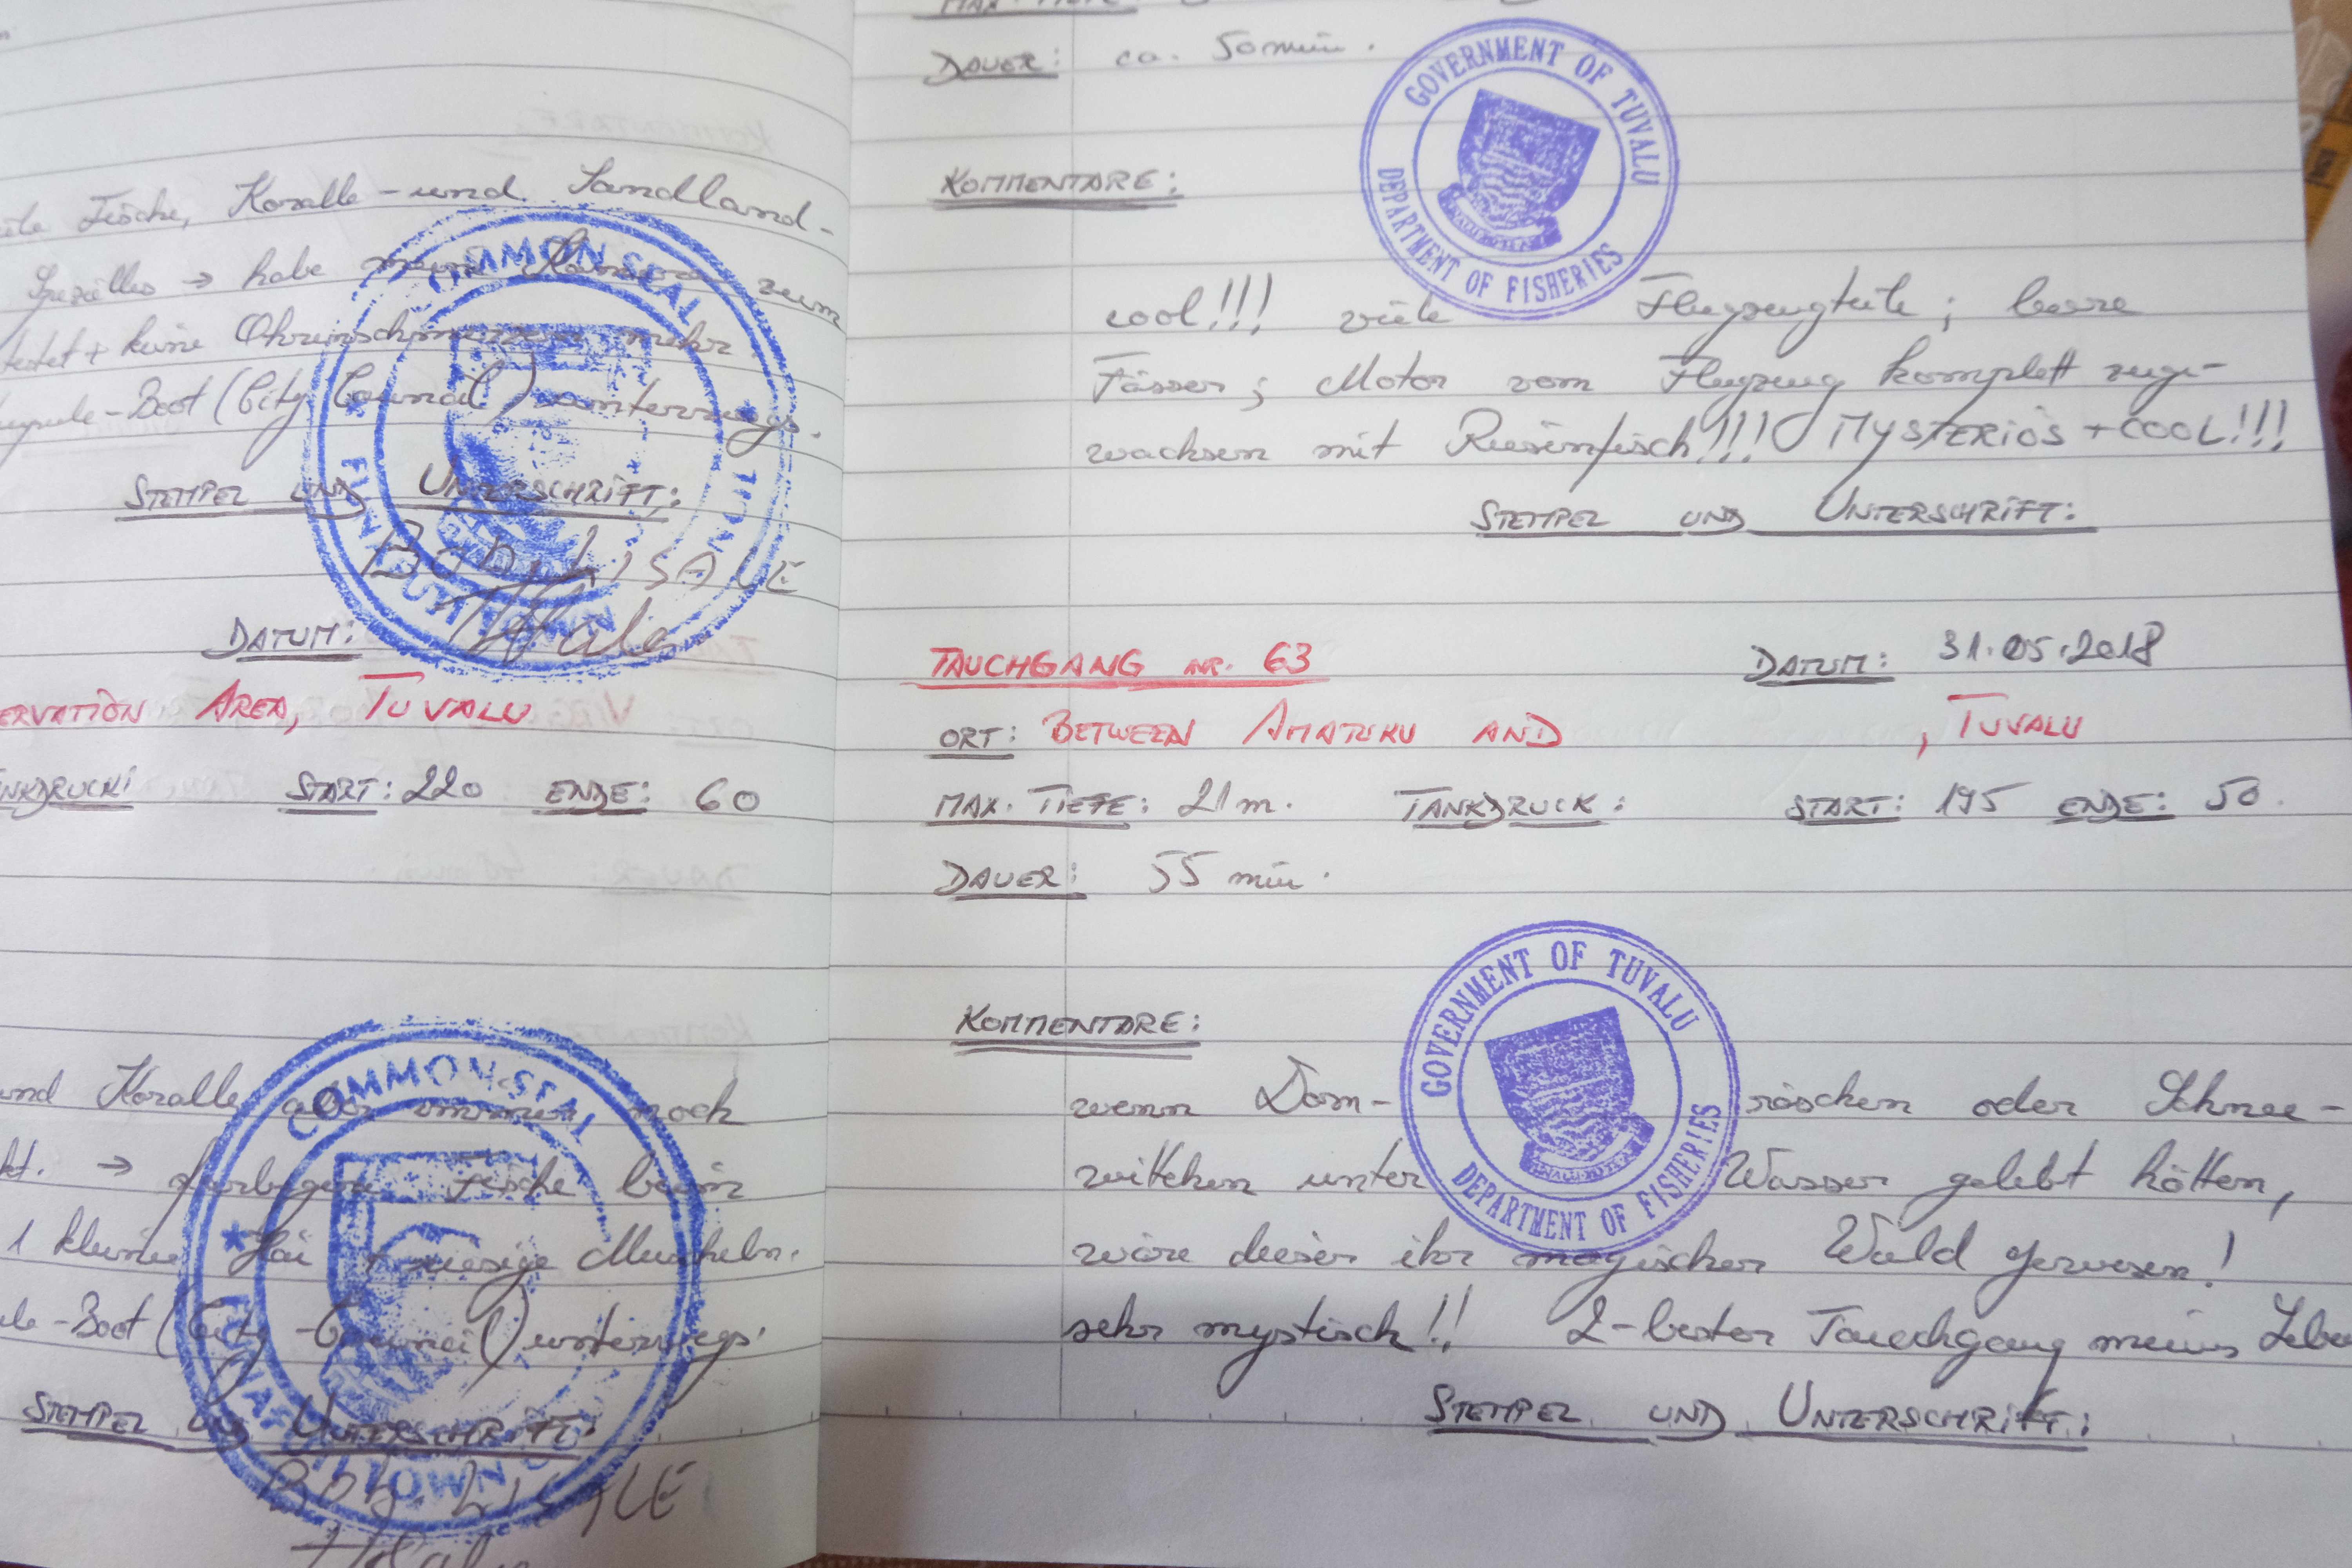 Fische, Koralle- und Sandland-
Spezielles → habe meine Kamera zum
+ keine Ohrenschmerzen mehr.
-Boot (City Council) unterwegs.
STEMPEL UND UNTERSCHRIFT:
COMMON SEAL
FUNAFUTI TOWN
BOB. LISALE
DATUM:
ERVATION AREA, TUVALU
NKDRUCK: START: 220 ENDE: 60
und Koralle aber immer noch
kt. → farbigere Fische beim
1 kleiner Hai + riesige Muscheln.
le-Boot (City-Council) unterwegs.
STEMPEL UND UNTERSCHRIFT:
COMMON SEAL
FUNAFUTI TOWN
BOB. LISALE
MAX. TIEFE:
DAUER: ca. 50 min.
GOVERNMENT OF TUVALU
DEPARTMENT OF FISHERIES
KOMMENTARE:
cool!!! viele Flugzeugteile; leere
Fässer; Motor vom Flugzeug komplett zuge-
wachsen mit Riesenfisch!!! MYSTERIÖS + COOL!!!
STEMPEL UND UNTERSCHRIFT:
TAUCHGANG NR. 63 DATUM: 31.05.2018
ORT: BETWEEN AMATUKU AND , TUVALU
MAX. TIEFE: 21 m. TANKDRUCK: START: 195 ENDE: 50.
DAUER: 55 min.
GOVERNMENT OF TUVALU
DEPARTMENT OF FISHERIES
KOMMENTARE:
wenn Dorn- röschen oder Schnee-
wittchen unter Wasser gelebt hätten,
wäre dieser ihr magischer Wald gewesen!
sehr mystisch!! 2-bester Tauchgang meines Lebe
STEMPEL UND UNTERSCHRIFT: